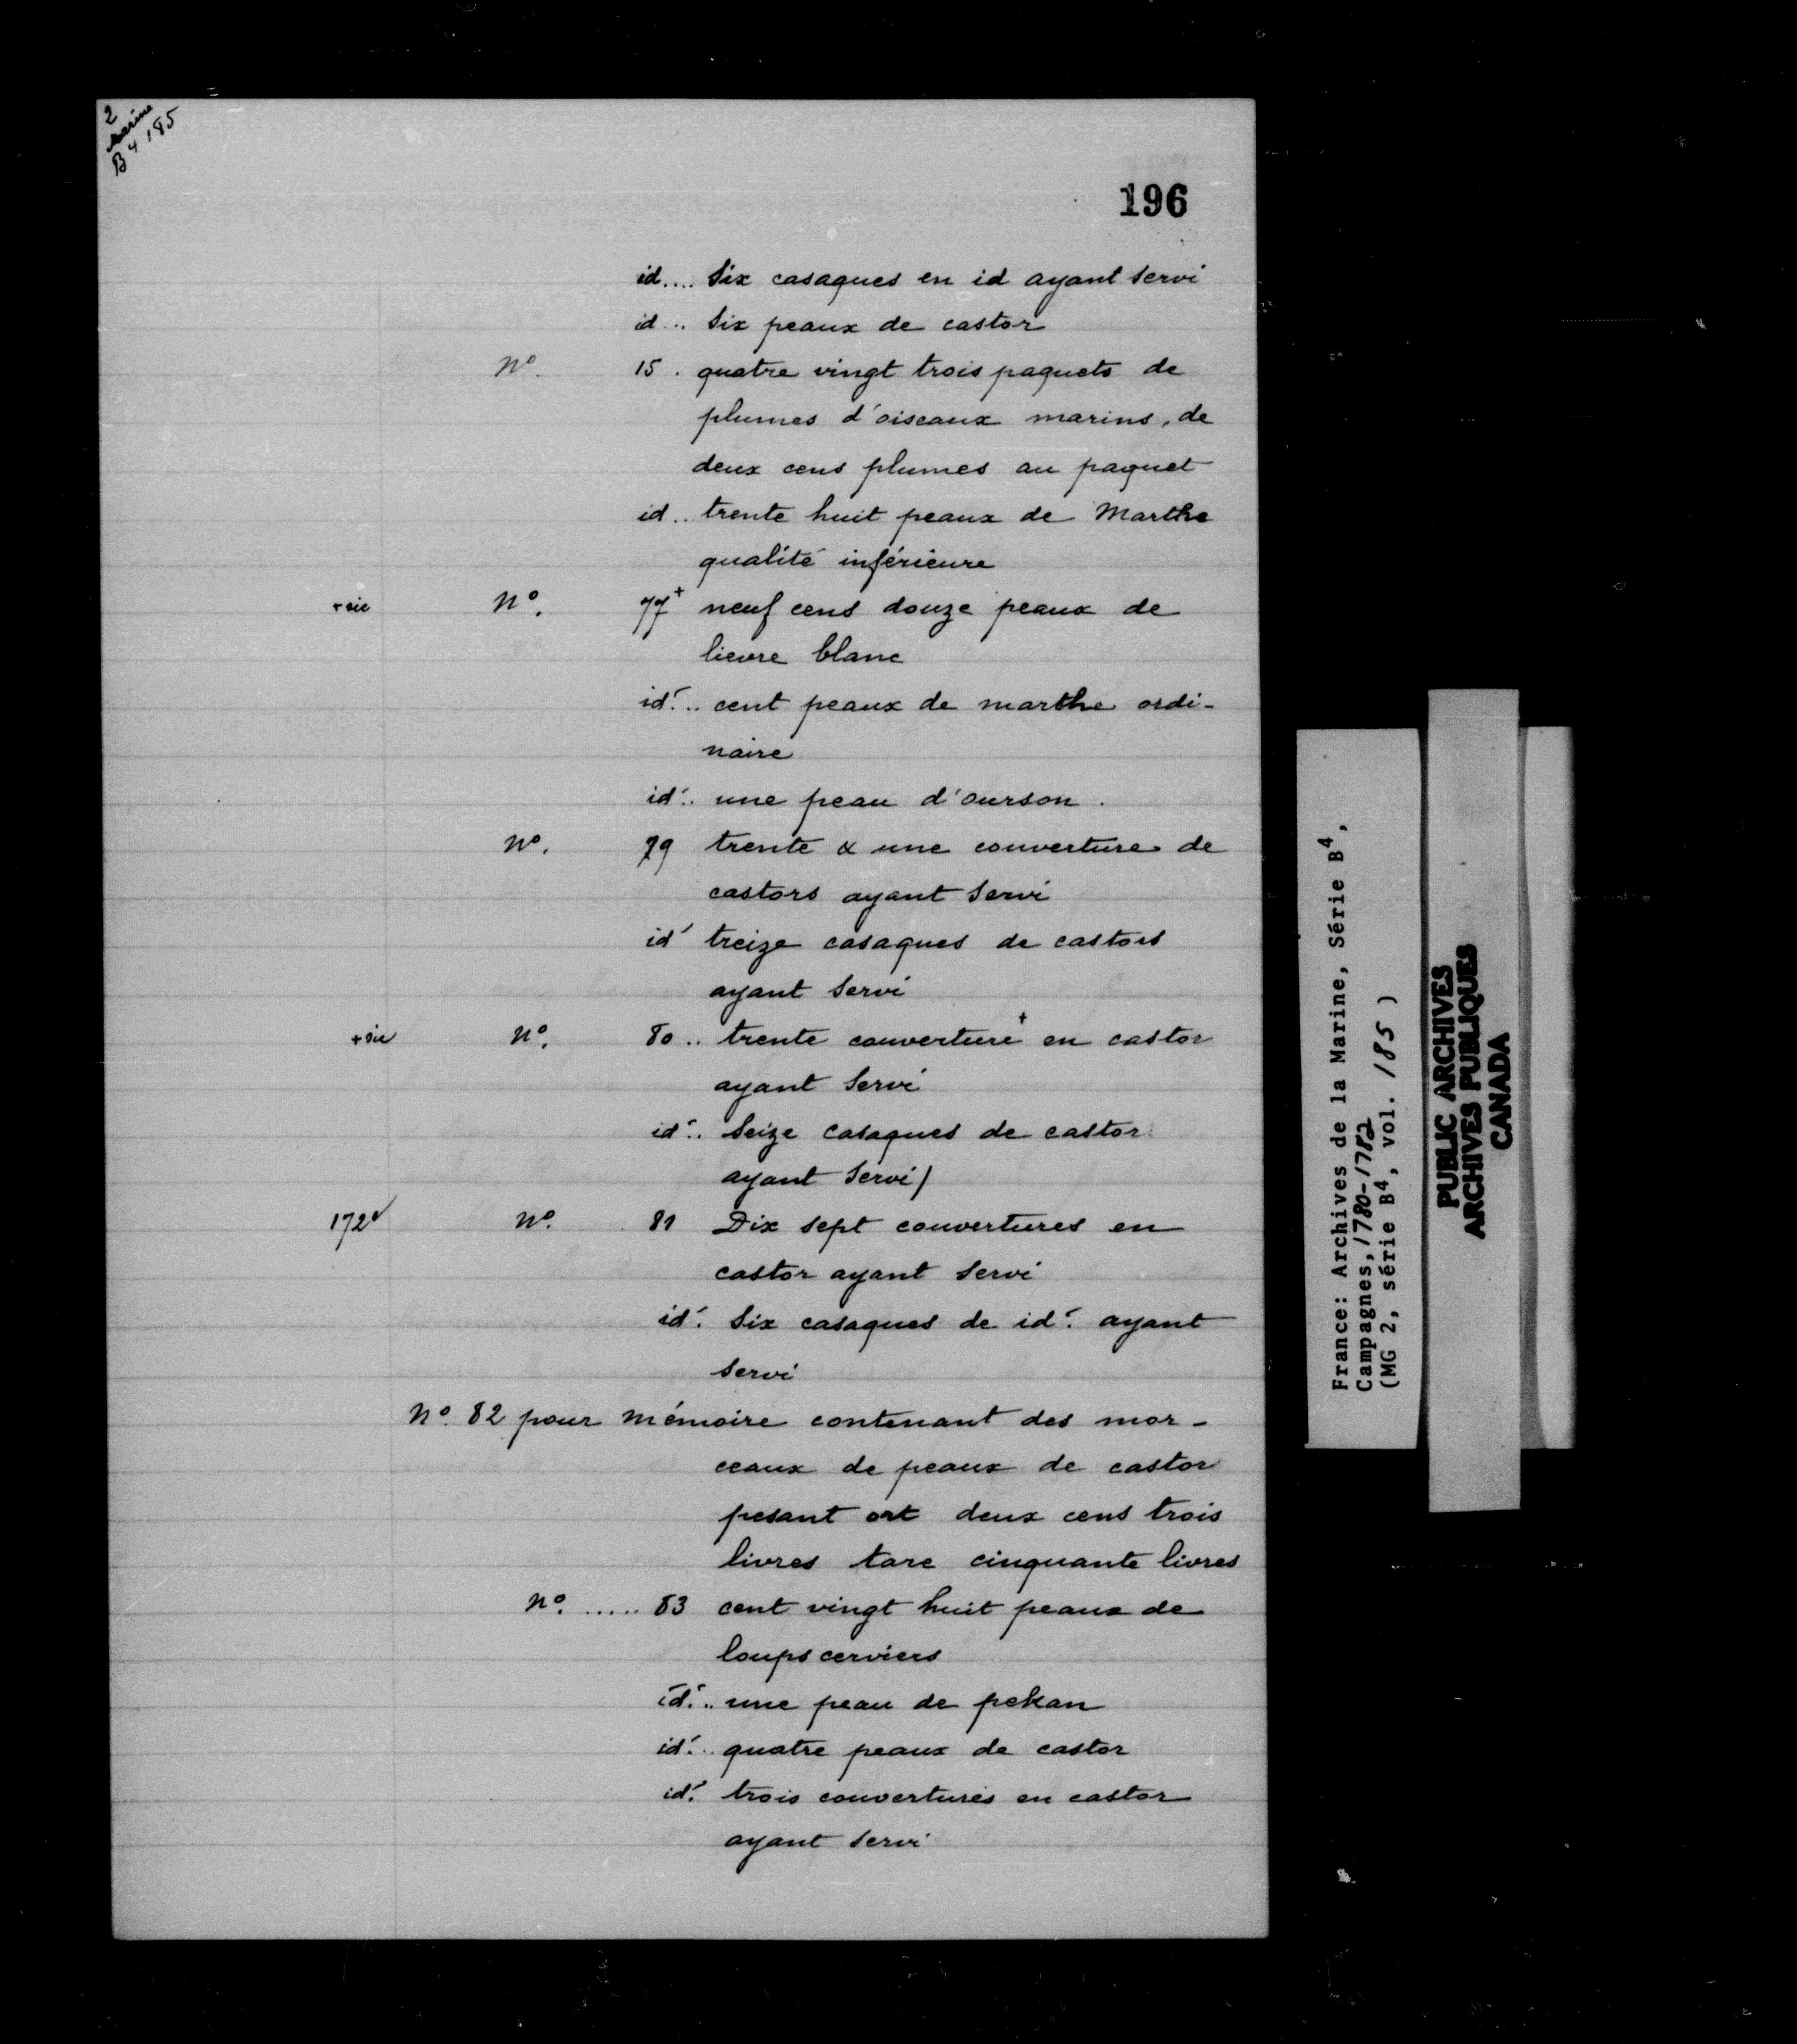 2
Marine
B4 185
196
id.... Six casaques en id ayant servi
id... Six peaux de castor
No. 15. quatre vingt trois paquets de
plumes d'oiseaux marins, de
deux cens plumes au paquet
id.. trente huit peaux de Marthe
qualité inférieure
+ sic No. 77+ neuf cens douze peaux de
lievre blanc
id.. cent peaux de marthe ordi-
naire
id.. une peau d'ourson.
No. 79 trente & une couverture de
castors ayant servi
id treize casaques de castors
ayant servi
+ sic No. 80.. trente couverture+ en castor
ayant servi
id.. Seize casaques de castor
ayant servi/
172v No. 81 Dix sept couvertures en
castor ayant servi
id. Six casaques de id. ayant
servi
No. 82 pour mémoire contenant des mor-
ceaux de peaux de castor
pesant ort deux cens trois
livres tare cinquante livres
No. ..... 83 cent vingt huit peaux de
loups cerviers
id... une peau de pekan
id... quatre peaux de castor
id. trois couvertures en castor
ayant servi
France: Archives de la Marine, Série B4,
Campagnes, 1780-1782
(MG 2, série B4, vol. 185)
PUBLIC ARCHIVES
ARCHIVES PUBLIQUES
CANADA